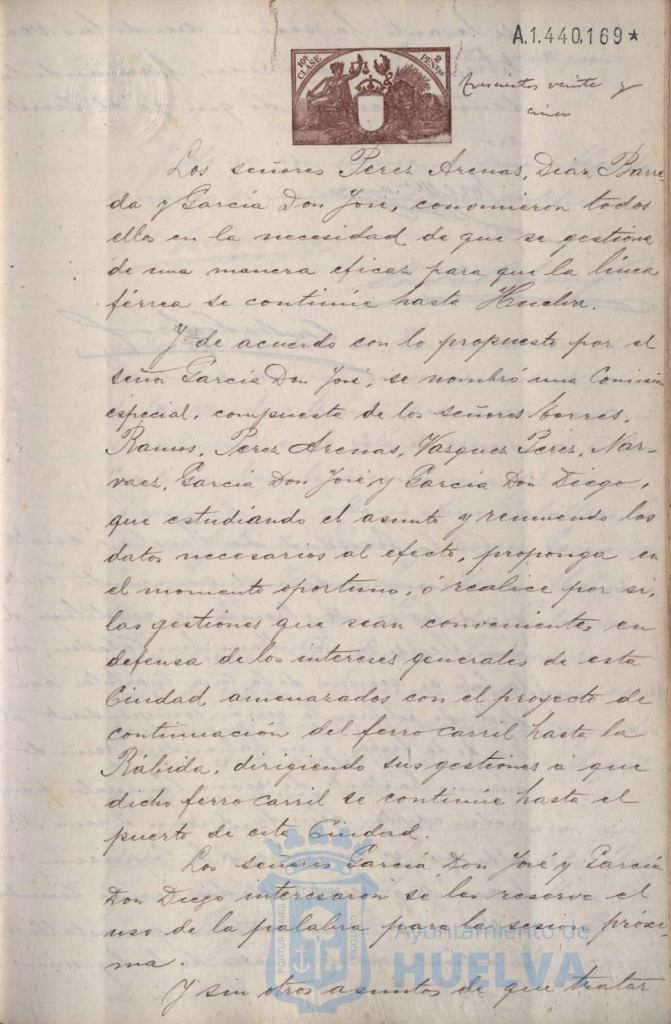 A.1.440,169*
10ª CLASE
2 PESETAS
trescientos veinte y
cinco
Los señores Perez Arenas, Diaz Barre
da y García Don José, convinieron todos
ellos en la necesidad de que se gestione
de una manera eficaz para que la línea
férrea se continúe hasta Huelva.
Y de acuerdo con lo propuesto por el
señor García Don José, se nombró una Comisión
especial, compuesta de los señores Torres,
Ramos, Perez Arenas, Vazquez Perez, Nar-
vaez, García Don José y García Don Diego,
que estudiando el asunto y reuniendo los
datos necesarios al efecto, proponga en
el momento oportuno, ó realice por si,
las gestiones que sean convenientes en
defensa de los intereses generales de esta
Ciudad amenazados con el proyecto de
continuación del ferro carril hasta la
Rábida, dirigiendo sus gestiones a que
dicho ferro carril se continúe hasta el
puerto de esta Ciudad.
Los señores García Don José y García
Don Diego interesaron se les reserve el
uso de la palabra para la sesión próxi
ma.
Y sin otros asuntos de que tratar
PORTUS MARIS ET TERRE CUSTODIA
Ayuntamiento de
HUELVA